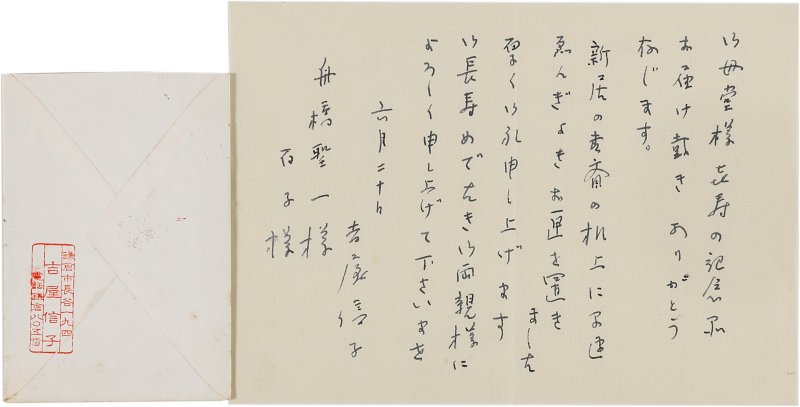 御母堂様 喜寿の記念品
お届け戴き ありがとう
存じます。
新居の書斎の机上に早速
ゑんぎよき お匣を置きました
厚く御礼申し上げます
御長寿めでたき御両親様に
よろしく申し上げて下さいませ
六月二十日
吉屋信子
舟橋聖一様
百子様
鎌倉市長谷一九四
吉屋信子
電話鎌倉八〇五番